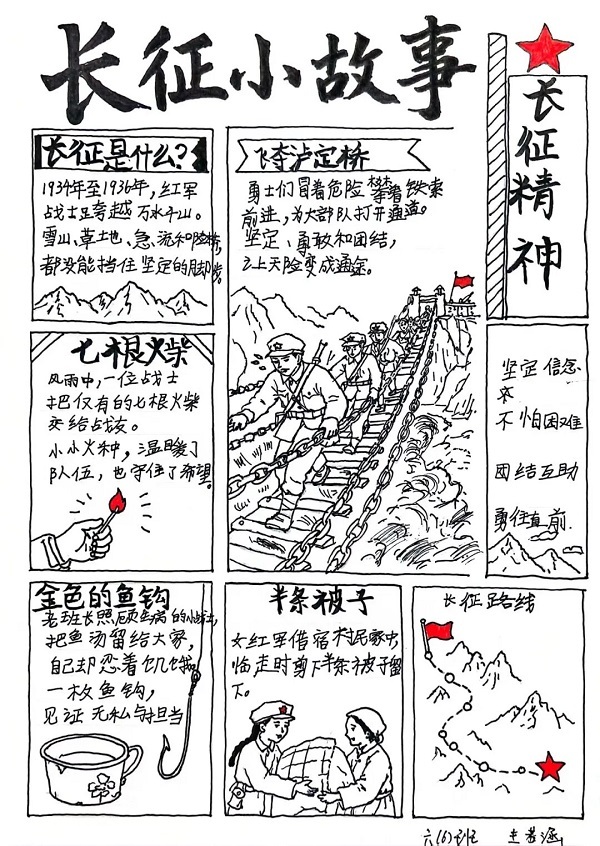 长征小故事
长征精神
长征是什么?
1934年至1936年,红军
战士足夸越万水千山。
雪山、草土地、急流和险桥,
都没能挡住坚定的脚步。
飞夺泸定桥
勇士们冒着危险攀着铁索
前进,为大部队打开通道。
坚定、勇敢和团结,
让天险变成通途。
七根火柴
风雨中,一位战士
把仅有的七根火柴
交给战友。
小小火种,温暖了
队伍,也守住了希望。
坚定信念
不怕困难
团结互助
勇往直前
金色的鱼钩
老班长照顾生病的小战士,
把鱼汤留给大家,
自己却忍着饥饿
一枚鱼钩,
见证无私与担当
半条被子
女红军借宿村民家中,
临走时剪下半条被子留
下。
长征路线
六(6)班